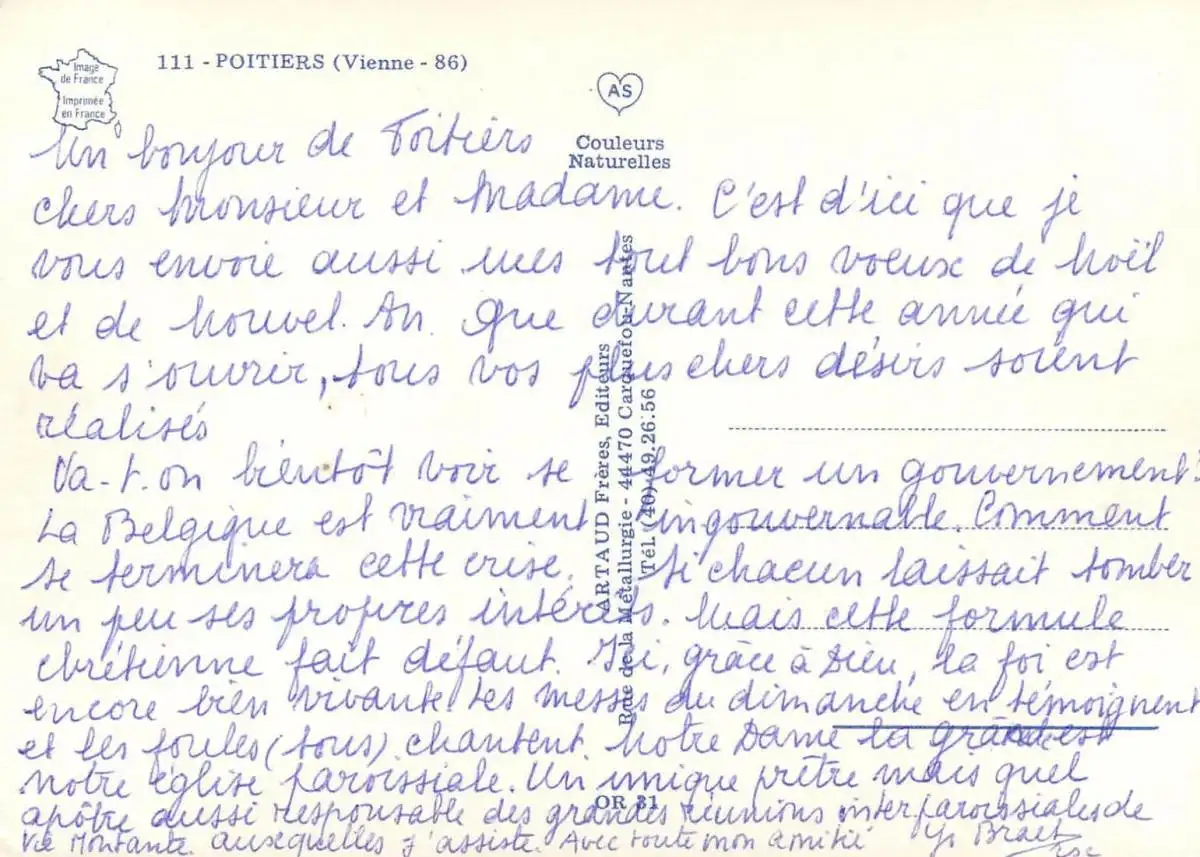 Image
de France
Imprimée
en France
111 - POITIERS (Vienne - 86)
AS
Couleurs
Naturelles
Un bonjour de Poitiers
chers Monsieur et Madame. C'est d'ici que je
vous envoie aussi mes tout bons voeux de Noël
et de Nouvel. An. Que durant cette année qui
va s'ouvrir, tous vos plus chers désirs soient
réalisés
Va-t-on bientôt voir se former un gouvernement.
La Belgique est vraiment ingouvernable. Comment
se terminera cette crise. Si chacun laissait tomber
un peu ses propres intérêts. Mais cette formule
chrétienne fait défaut. Ici, grâce à Dieu, la foi est
encore bien vivante les messes du dimanche en témoignent
et les foules (tous) chantent. Notre Dame la grande est
notre église paroissiale. Un unique prêtre mais quel
apôtre aussi responsable des grandes réunions interparoissiales de
Vie Montante auxquelles j'assiste. Avec toute mon amitié
ARTAUD Frères, Editeurs
Rue de la Métallurgie - 44470 Carquefou-Nantes
Tél. (40) 49.26.56
OR 31